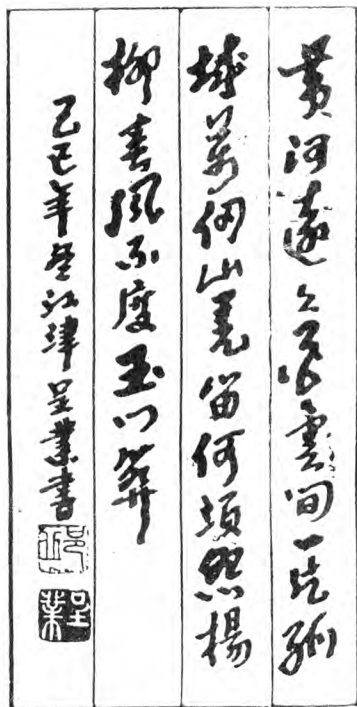 黄河遠上白雲間一片孤
城萬仞山羌笛何須怨楊
柳春風不度玉門關
己巳年江津呈業書
呈業